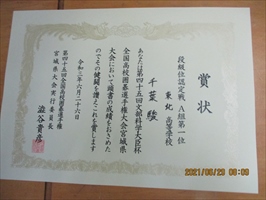 賞状
段級位認定戦A組第一位
東北高等学校
千葉駿
あなたは第四十五回文部科学大臣杯
全国高校囲碁選手権大会宮城県
大会において頭書の成績をおさめた
のでその健闘を讃えこれを賞します
令和三年六月二十六日
第四十五回全国高校囲碁選手権
宮城県大会実行委員長
澁谷貴彦
2021/06/29